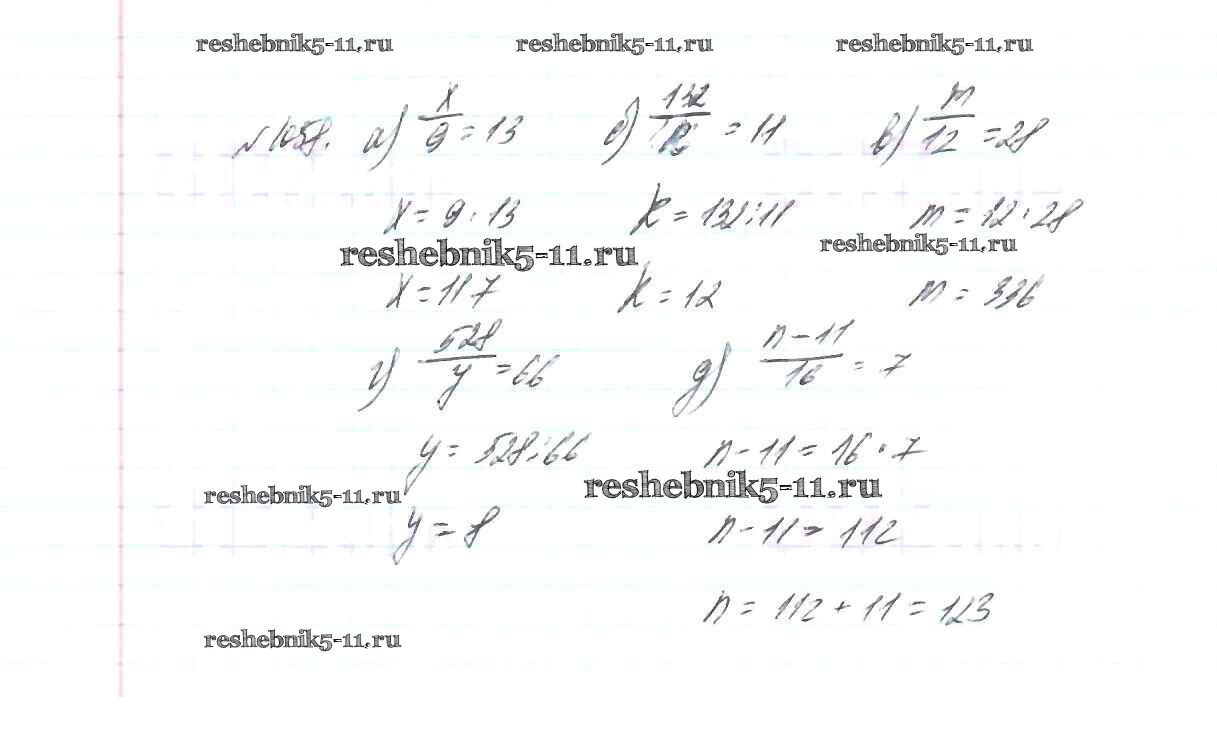 reshebnik5-11.ru reshebnik5-11.ru reshebnik5-11.ru
№1058. а) x/9 = 13 б) 132/k = 11 в) m/12 = 28
x = 9 · 13 k = 132:11 m = 12 · 28
reshebnik5-11.ru reshebnik5-11.ru
x = 117 k = 12 m = 336
г) 528/y = 66 д) n-11/16 = 7
y = 528:66 n-11 = 16 · 7
reshebnik5-11.ru reshebnik5-11.ru
y = 8 n-11 = 112
n = 112 + 11 = 123
reshebnik5-11.ru